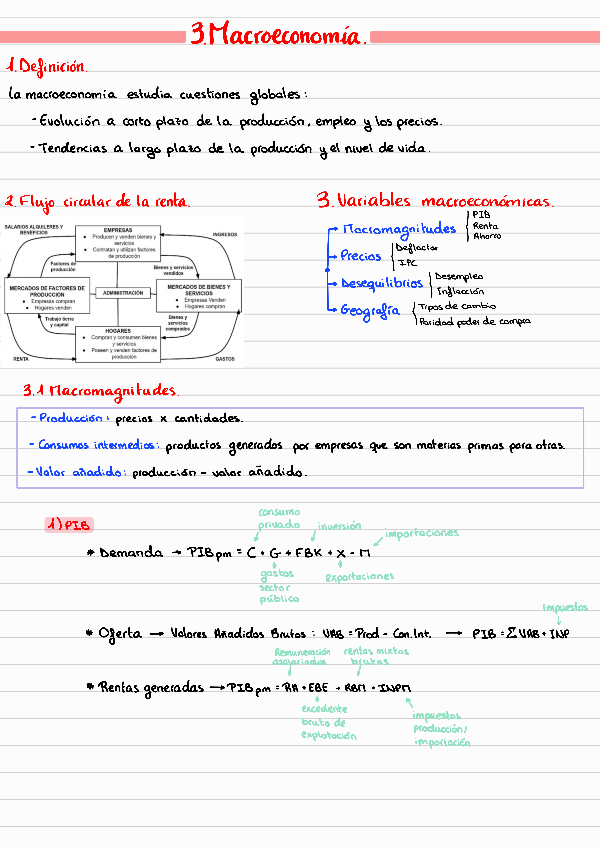 3.Macroeconomía.
1.Definición.
La macroeconomía estudia cuestiones globales:
- Evolución a corto plazo de la producción, empleo y los precios.
- Tendencias a largo plazo de la producción y el nivel de vida.
2.Flujo circular de la renta.
SALARIOS ALQUILERES Y
BENEFICIOS
EMPRESAS
• Producen y venden bienes y
servicios
• Contratan y utilizan factores
de producción
INGRESOS
Factores de
producción
Bienes y servicios
vendidos
MERCADOS DE FACTORES DE
PRODUCCIÓN
• Empresas compran
• Hogares venden
ADMINISTRACIÓN
MERCADOS DE BIENES Y
SERVICIOS
• Empresas Venden
• Hogares compran
Trabajo tierra
y capital
Bienes y
servicios
comprados
HOGARES
• Compran y consumen bienes
y servicios
• Poseen y venden factores de
producción
RENTA
GASTOS
3.Variables macroeconómicas.
→ Macromagnitudes
PIB
Renta
Ahorro
→ Precios
Deflactor
IPC
→ Desequilibrios
Desempleo
Inflacción
→ Geografía
Tipos de cambio
Paridad poder de compra
3.1 Macromagnitudes.
- Producción: precios x cantidades.
- Consumos intermedios: productos generados por empresas que son materias primas para otras.
- Valor añadido: producción - valor añadido.
1) PIB
consumo
privado
inversión
importaciones
* Demanda → PIBpm = C + G + FBK + X - M
gastos
sector
público
exportaciones
impuestos
* Oferta → Valores Añadidos Brutos: VAB = Prod - Con.Int. → PIB = ΣVAB + INP
Remuneración
asalariados
rentas mixtas
brutas
* Rentas generadas → PIBpm = RA + EBE + RBM + INPM
excedente
bruto de
explotación
impuestos
producción/
importación